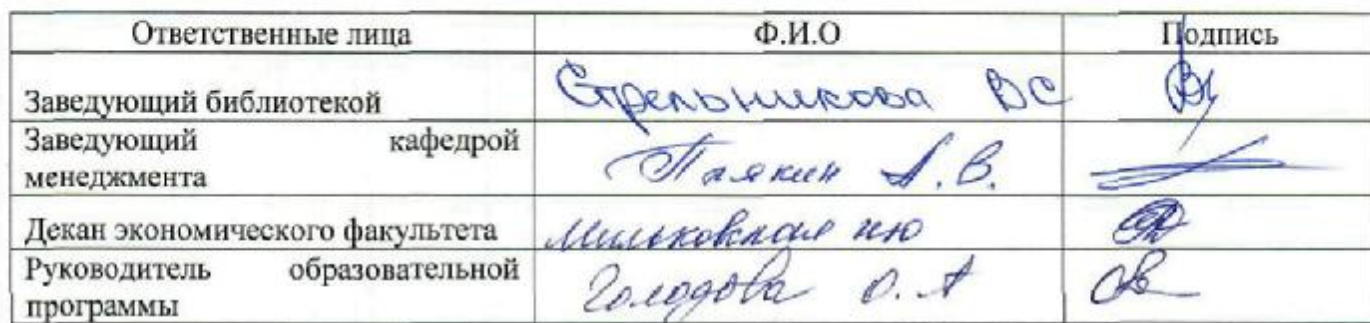 Ответственные лица Ф.И.О Подпись
Заведующий библиотекой Стрельникова ВС
Заведующий кафедрой
менеджмента А.В.
Декан экономического факультета ию
Руководитель образовательной
программы Голодова О.А